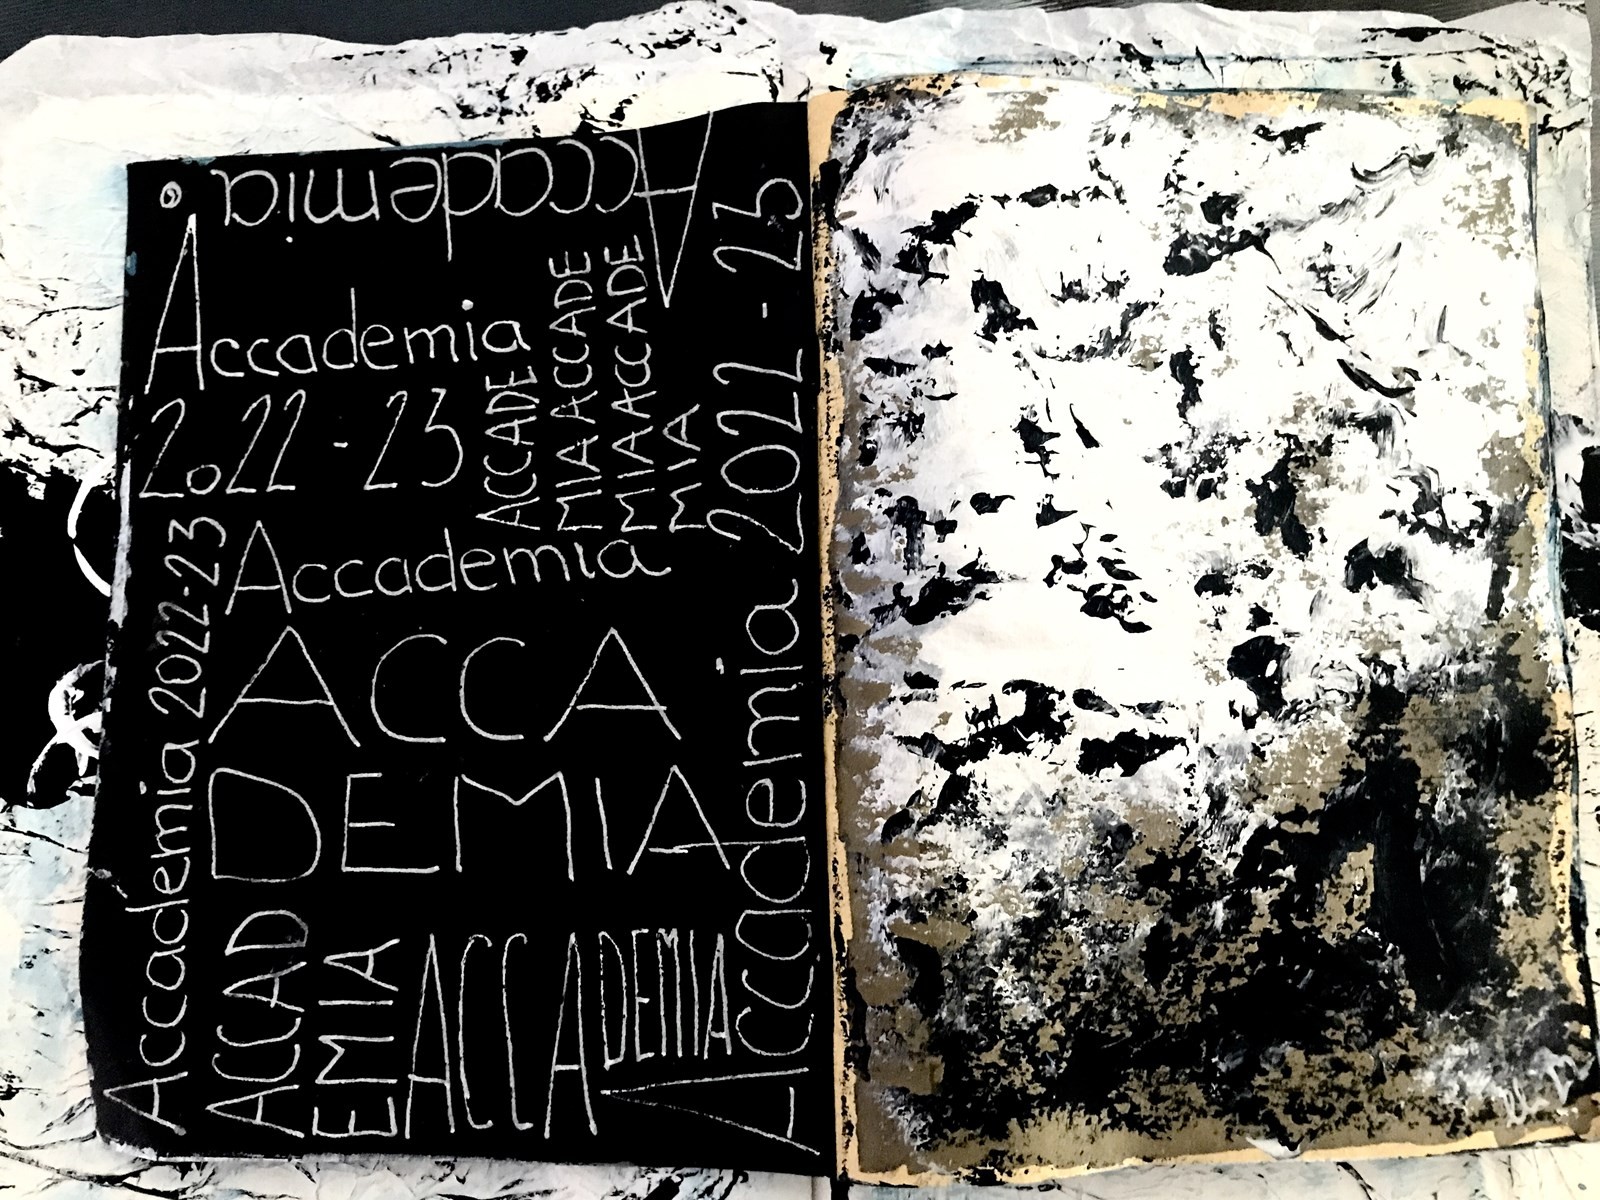 Accademia
Accademia
2022-23
ACCADE
MIAACCADE
MIAACCADE
MIA
Accademia
ACCA
DEMIA
Accademia 2022-23
ACCAD
EMIA
ACCADEMIA
Accademia 2022-23